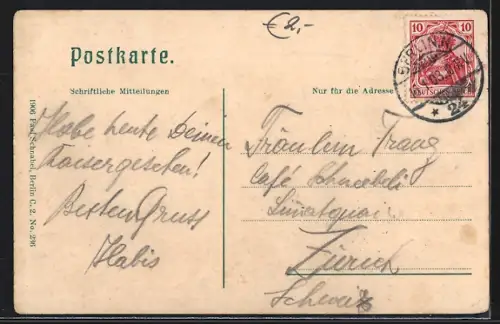 €2,-
Postkarte.
Schriftliche Mitteilungen
Nur für die Adresse
10 10
BERLIN.N.
* 24
1906 Paul Schnabel, Berlin C. 2. No. 236
Habe heute Deinen
Kaiser gesehen!
Besten Gruss
Habis
Fräulein
Café
Limatquai
Zürich
Schweiz